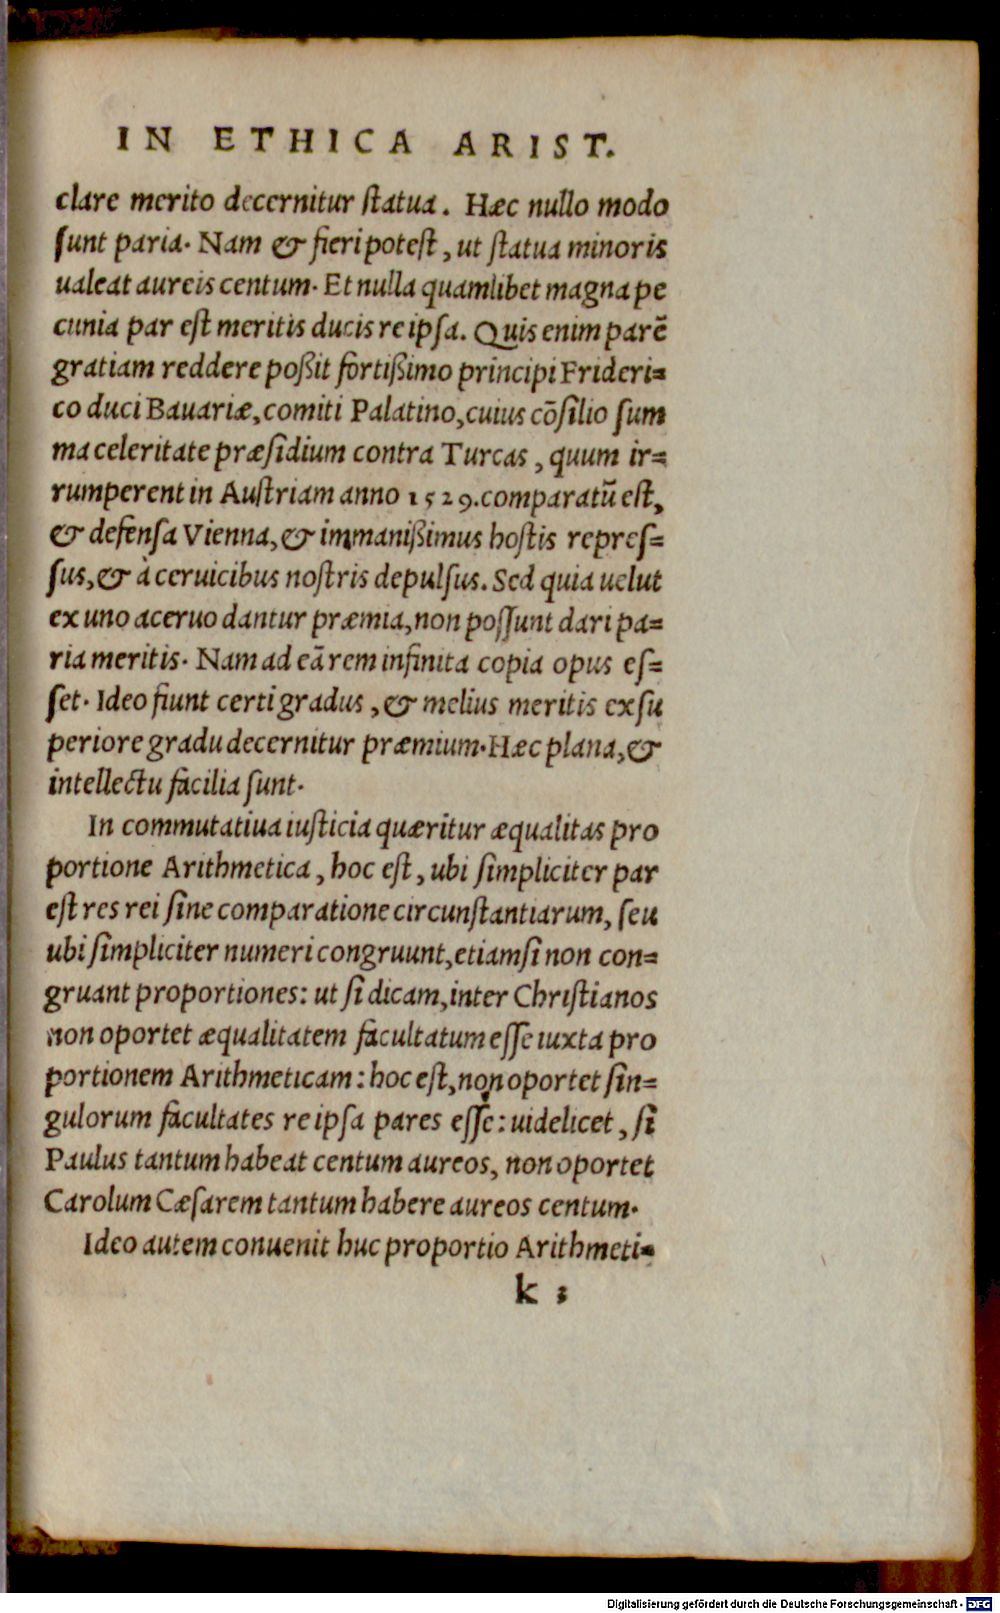 IN ETHICA ARIST.
clare merito decernitur ſtatua. Hæc nullo modo
ſunt paria. Nam & fieri poteſt, ut ſtatua minoris
ualeat aureis centum. Et nulla quamlibet magna pe
cunia par eſt meritis ducis reipſa. Quis enim parē
gratiam reddere poßit fortißimo principi Frideri=
co duci Bauariæ, comiti Palatino, cuius cōſilio ſum
ma celeritate præſidium contra Turcas, quum ir=
rumperent in Auſtriam anno 1529. comparatū eſt,
& defenſa Vienna, & immanißimus hoſtis repreſ=
ſus, & à ceruicibus noſtris depulſus. Sed quia uelut
ex uno aceruo dantur præmia, non poſſunt dari pa=
ria meritis. Nam ad eā rem infinita copia opus eſ=
ſet. Ideo fiunt certi gradus, & melius meritis ex ſu
periore gradu decernitur præmium. Hæc plana, &
intellectu facilia ſunt.
In commutatiua iuſticia quæritur æqualitas pro
portione Arithmetica, hoc eſt, ubi ſimpliciter par
eſt res rei ſine comparatione circunſtantiarum, ſeu
ubi ſimpliciter numeri congruunt, etiamſi non con=
gruant proportiones: ut ſi dicam, inter Chriſtianos
non oportet æqualitatem facultatum eſſe iuxta pro
portionem Arithmeticam: hoc eſt, non oportet ſin=
gulorum facultates reipſa pares eſſe: uidelicet, ſi
Paulus tantum habeat centum aureos, non oportet
Carolum Cæſarem tantum habere aureos centum.
Ideo autem conuenit huc proportio Arithmeti=
k 3
Digitalisierung gefördert durch die Deutsche Forschungsgemeinschaft - DFG